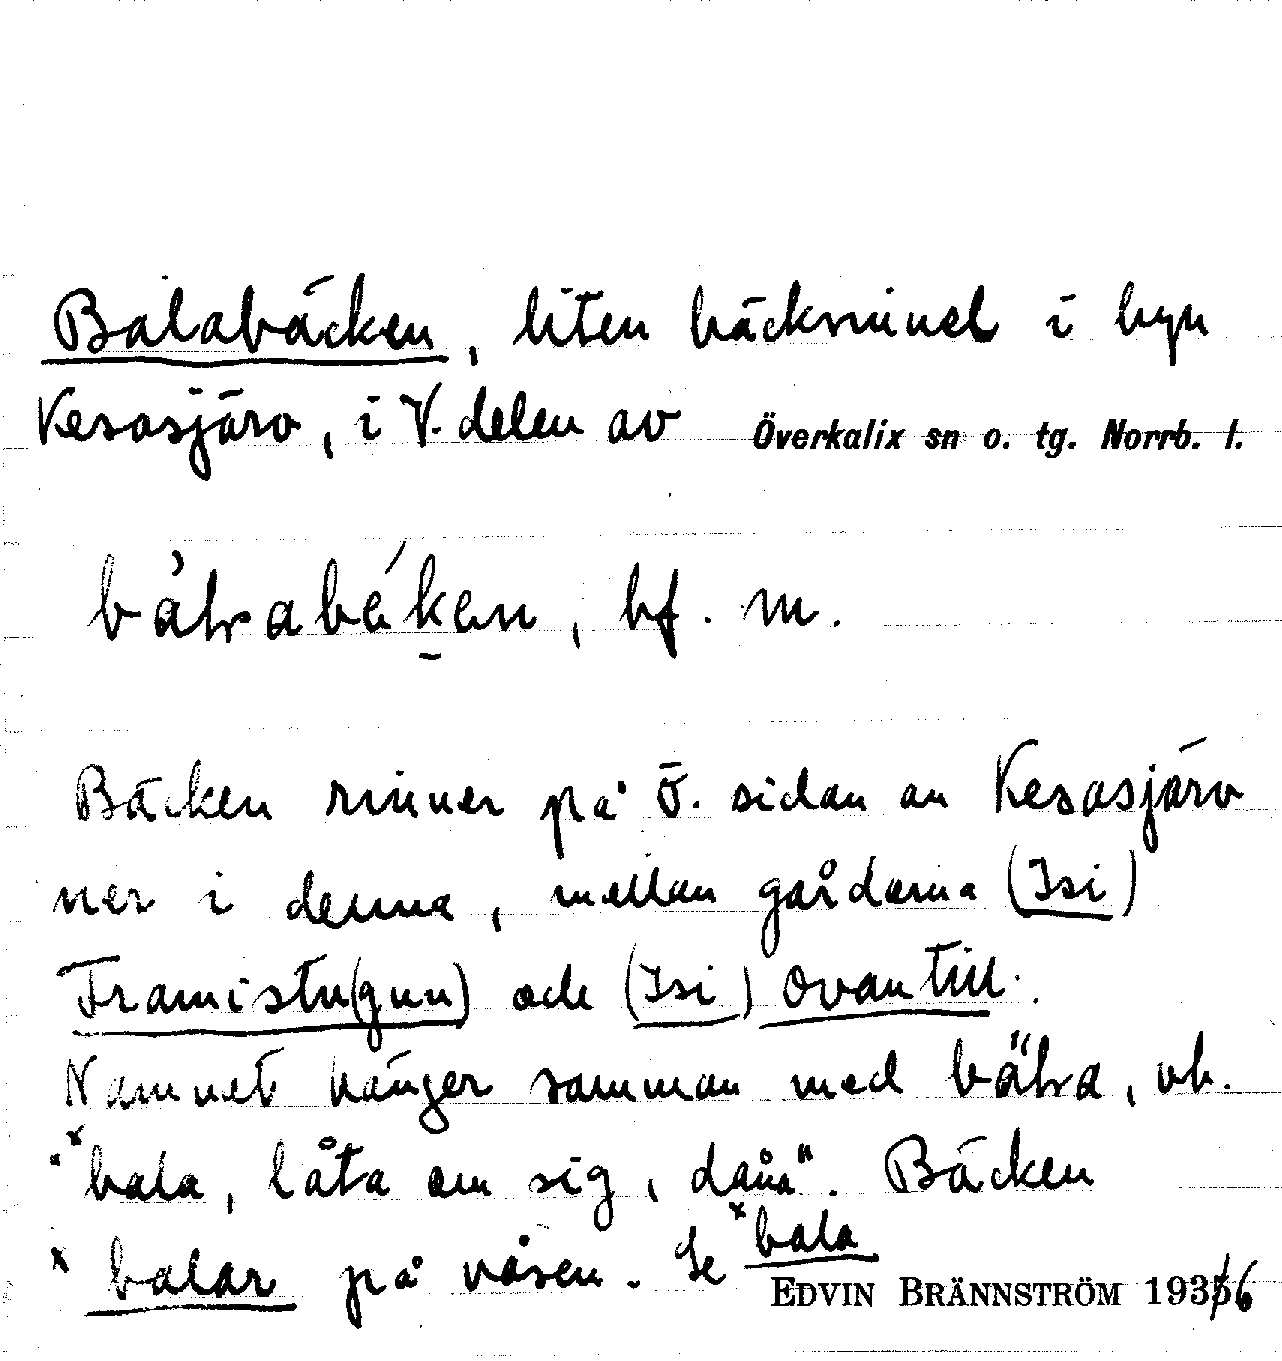 Balabäcken, liten bäckminel i byn
Kesasjärv, i V. delen av Överkalix sn o. tg. Norrb. l.
bf. m.
Bäcken rinner på Ö. sidan av Kesasjärv
ner i denna, mellan gårdarna (Isi)
Framistu(gun) och (Isi) ovantill.
Namnet hänger samman med vb.
"×bala, låta om sig, dåna". Bäcken
×balar på våren. Se ×bala
EDVIN BRÄNNSTRÖM 1936